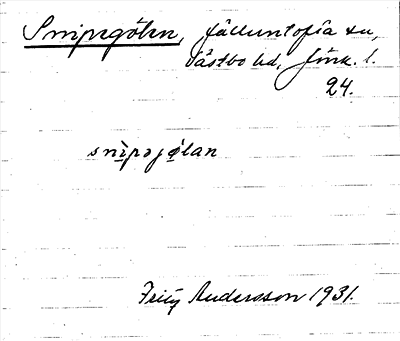 Snipegölen, Källuntofta sn,
Västbo hd, Jönk. l.
24.
snipəjölan
Fritz Andersson 1931.